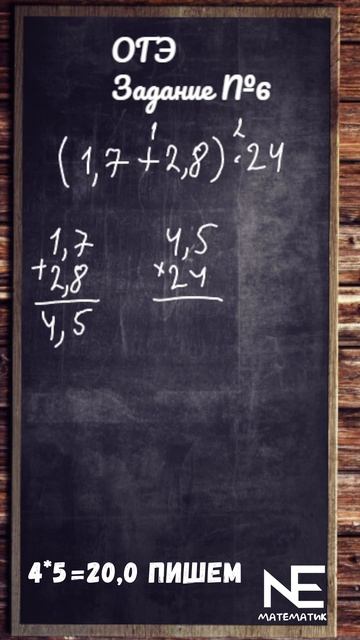 ОТЭ
Задание №6
1 2
(1,7+2,8)·24
1,7
+2,8
4,5
4,5
×24
4*5=20,0 ПИШЕМ
NE
МАТЕМАТИК